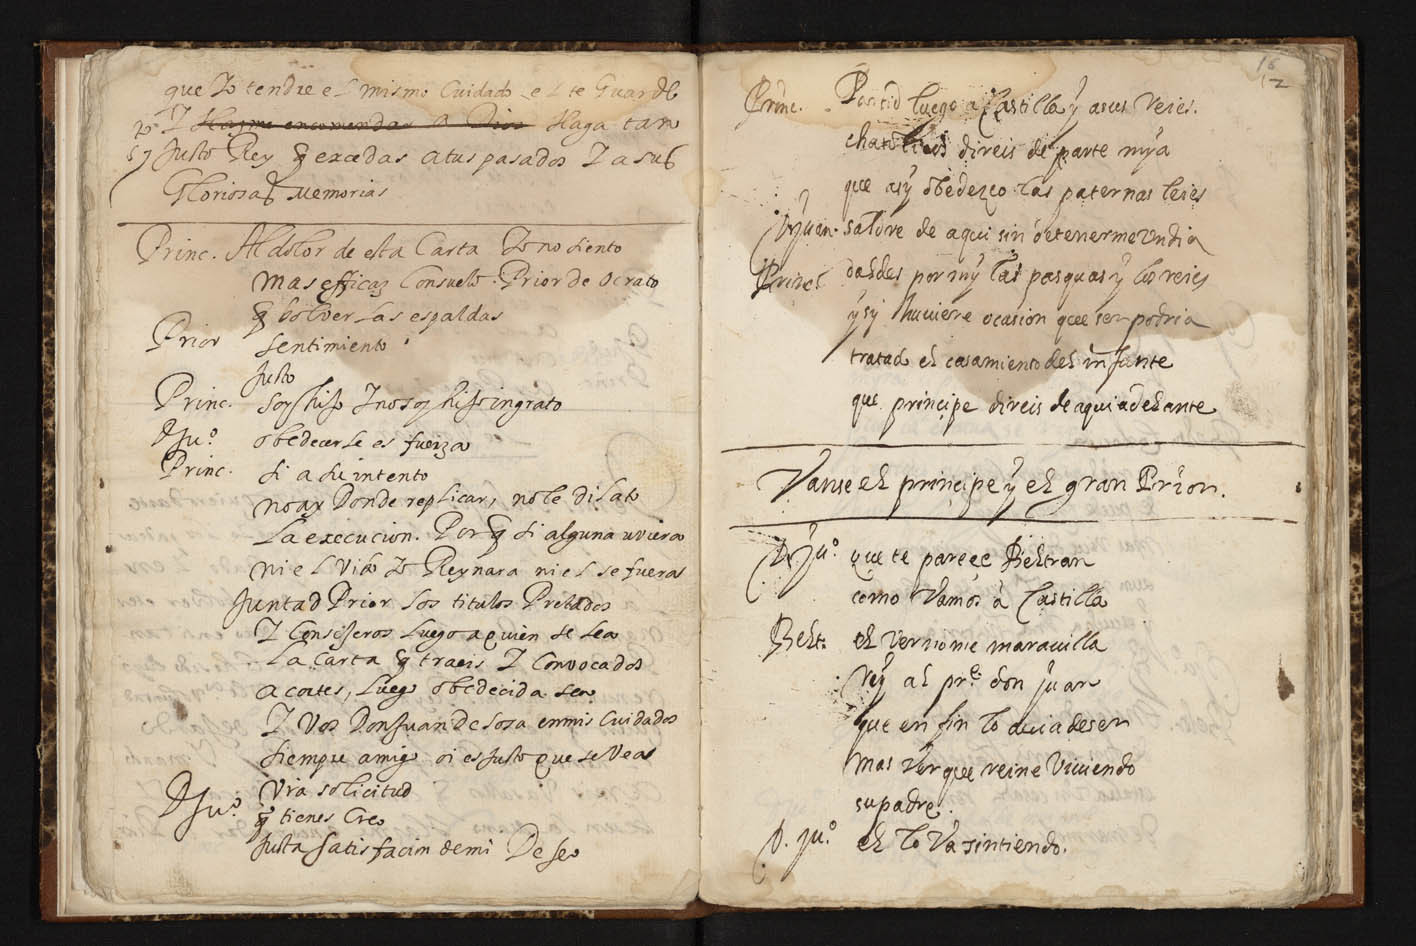 que Yo tendre el mismo Cuidado el te Guarde
Y Hagme encomendar a Dios Haga tan
Justo Rey q excedas atus pasados Y a sus
Gloriosas Memorias
Princ. Al dolor de esta Carta Yo no siento
mas efficaz Consuelo. Prior de Ocrato
q bolver las espaldas
Prior sentimiento
Justo
Princ. soy hijo Y no soy hijo ingrato
D Ju.º obedecerle es fuerza
Princ. si a su intento
no ay Donde replicar, no le dilato
La execucion. Por q si alguna uviera
ni el Vibo Yo Reynara ni el se fuera
Juntad Prior los titulos Prelados
Y Consejeros luego a quien se lea
La Carta q traeis Y Convocados
a cortes, luego obedecida sea
Y Vos Don Juan De sosa en mis Cuidados
siempre amigo oi es Justo que se Vea
Vra solicitud
D Ju.º q tienes Creo
Justa satisfacion de mi Deseo
16
17
Princ. Partid luego a Castilla y a sus Reies.
chatolicos direis de parte mya
que asy obedezco las paternas leies
D Juan. saldre de aqui sin detenerme un dia
Princ. daldes por my las pasquas y los reies
y sy huviere ocasion que ser podria
tratad el casamiento del infante
que principe direis de aqui adelante
Vanse el principe y el gran Prior.
D. Ju.º que te parece Beltran
como Vamos a Castilla
Belt. el Verno me maravilla
rey al pr.e don juan
que en fin lo avia de ser
mas Ver que reine Viviendo
su padre.
D. Ju.º el lo Va sintiendo.